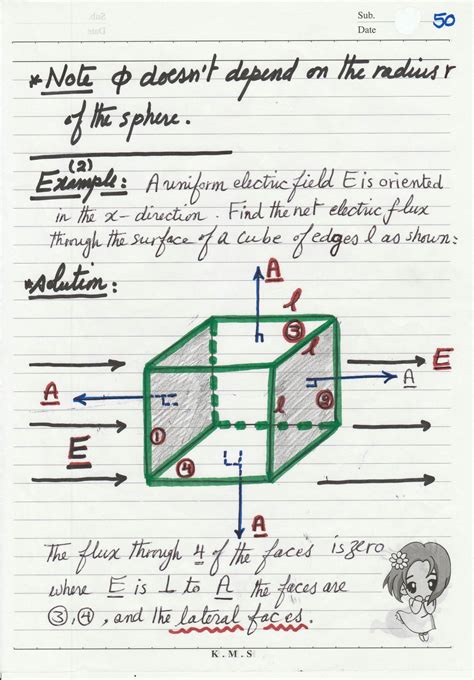 Sub.
Date
50
* Note ϕ doesn't depend on the radius r
of the sphere.
(2)
Example: A uniform electric field E is oriented
in the x-direction. Find the net electric flux
through the surface of a cube of edges l as shown:
* Solution:
A
l
3
l
E
A
A
l
2
1
E
4
A
The flux through 4 of the faces is zero
where E is ⊥ to A the faces are
③, ④, and the lateral faces.
K.M.S